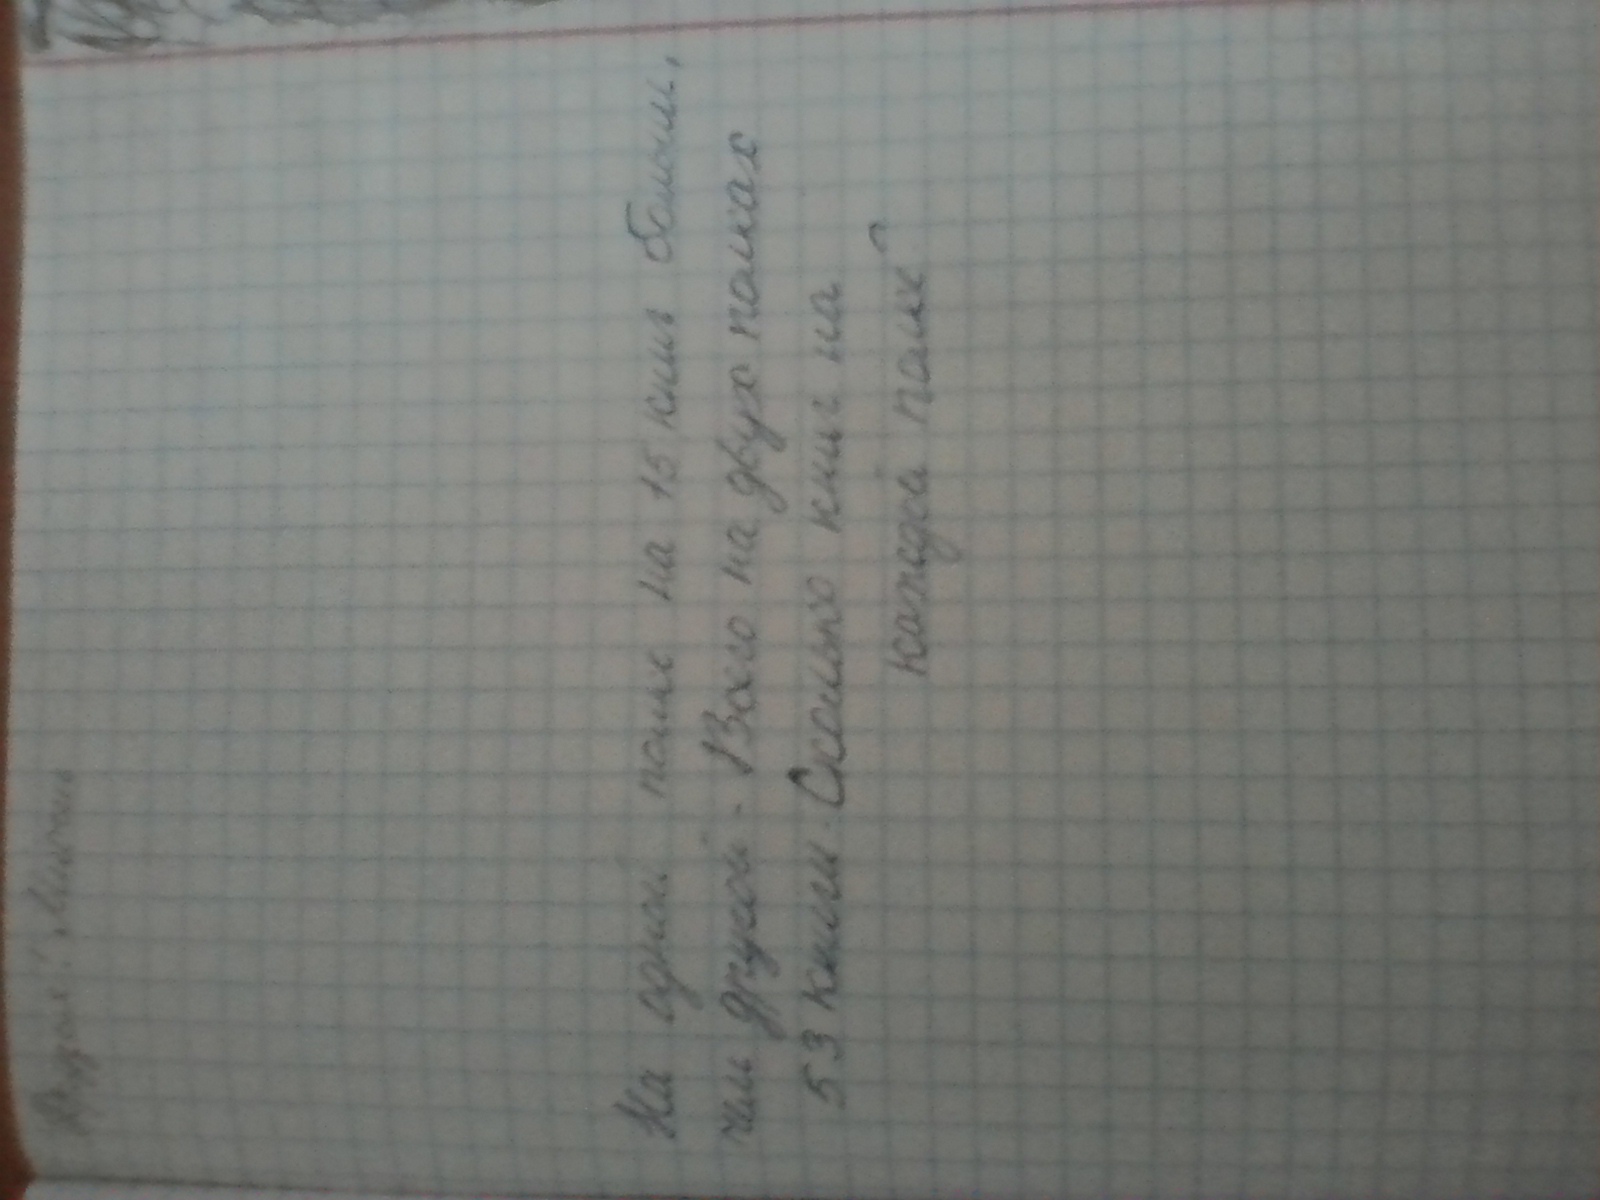 На одной полке на 15 книг больше,
чем другой. Всего на двух полках
53 книги. Сколько книг на
каждой полке